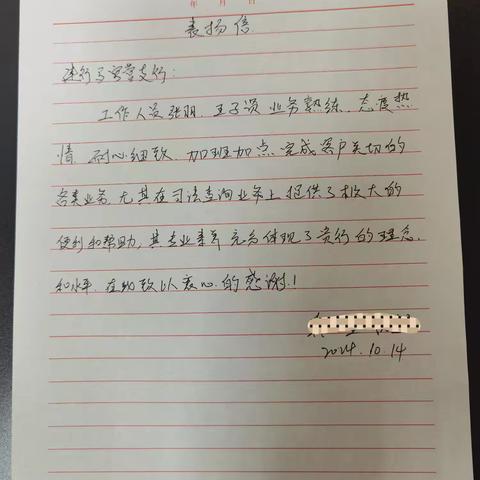 年 月 日
表扬信
建行马家营支行:
工作人员张羽、王子颂业务熟练、态度热
情、耐心细致、加班加点完成客户关切的
各类业务,尤其在司法查询业务上提供了极大的
便利和帮助,其专业素养充分体现了贵行的理念
和水平,在此致以衷心的感谢!
2024.10.14